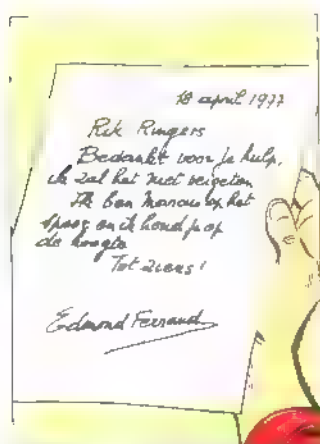 18 april 1977
Rik Ringers
Bedankt voor je hulp,
ik zal het niet vergeten
Ik ben Marcus op het
spoor en ik houd je op
de hoogte
Tot ziens!
Edmond Ferraud